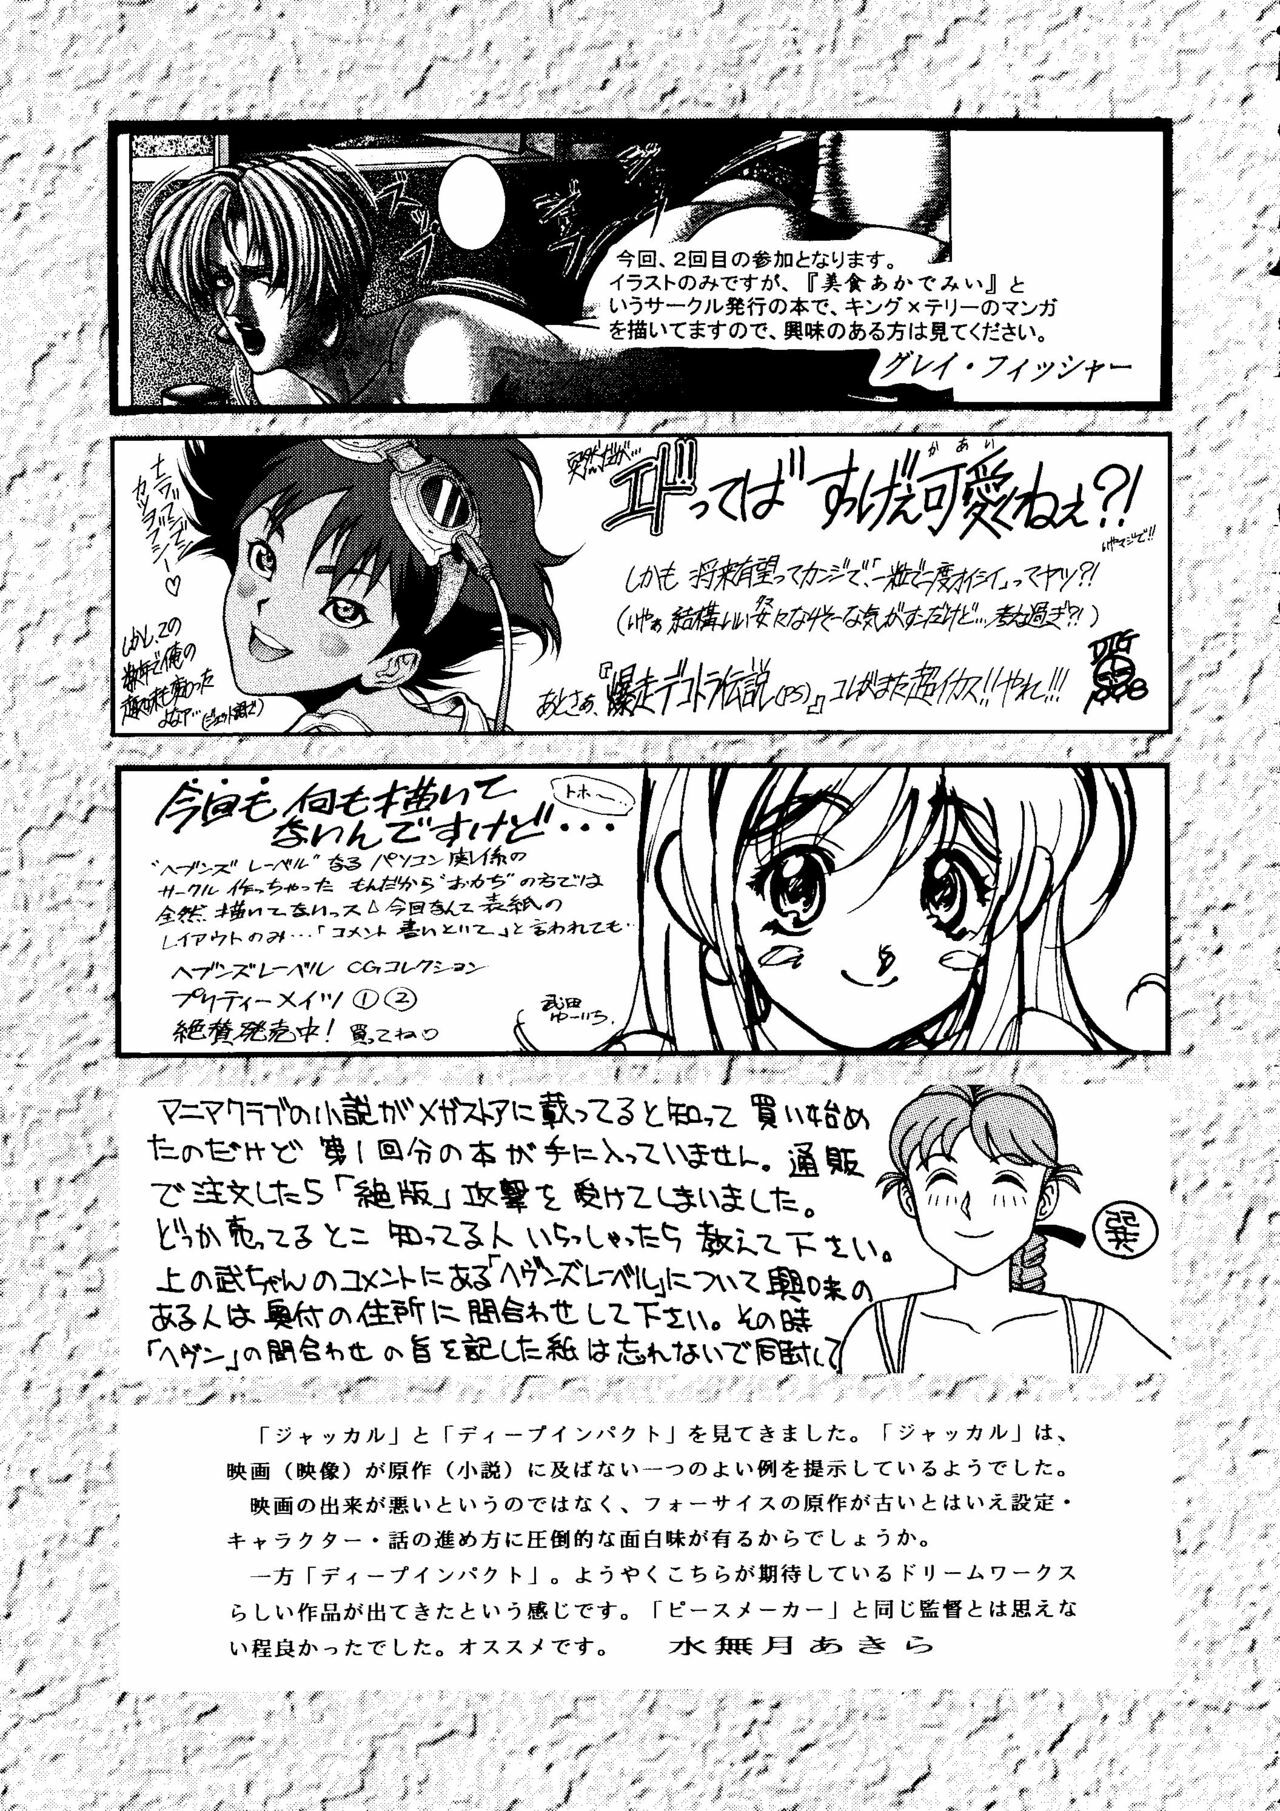 今回、2回目の参加となります。
イラストのみですが、『美食あかでみい』と
いうサークル発行の本で、キング×テリーのマンガ
を描いてますので、興味のある方は見てください。
グレイ・フィッシャー
突然だが…
エドってば すっげぇ可愛くねぇ?!
かあい
いやマジで!!
しかも 将来有望ってカンジで、「一粒で二度オイシイ」ってヤツ?!
あとさぁ、『爆走デコトラ伝説(PS)』コレがまた超イカス!!やれ!!!
しかし、この
数年で俺の
趣味も変わった
よなァ…
今回も 何も描いて
ないんですけど・・・
トホ〜…
"ヘブンズ レーベル" なる パソコン関係の
サークル作っちゃった もんだから "おかぢ" の方では
全然 描いてないっス 今回なんて表紙の
レイアウトのみ…「コメント 書いといて」と言われても…
ヘブンズレーベル CGコレクション
プリティーメイツ ① ②
絶賛発売中! 買ってね♡
武田
ゆーいち.
マニアクラブの小説がメガストアに載ってると知って 買い始め
たのだけど 第1回分の本が手に入っていません。通販
で注文したら「絶版」攻撃を受けてしまいました。
どっか売ってるとこ 知ってる人 いらっしゃったら 教えて下さい。
上の武ちゃんのコメントにある「ヘヴンズレーベル」について興味の
ある人は奥付の住所に問合わせして下さい。その時
「ヘヴン」の問合わせの旨を記した紙は忘れないで同封して
巽
「ジャッカル」と「ディープインパクト」を見てきました。「ジャッカル」は、
映画（映像）が原作（小説）に及ばない一つのよい例を提示しているようでした。
映画の出来が悪いというのではなく、フォーサイスの原作が古いとはいえ設定・
キャラクター・話の進め方に圧倒的な面白味が有るからでしょうか。
一方「ディープインパクト」。ようやくこちらが期待しているドリームワークス
らしい作品が出てきたという感じです。「ピースメーカー」と同じ監督とは思えな
い程良かったでした。オススメです。 水無月あきら